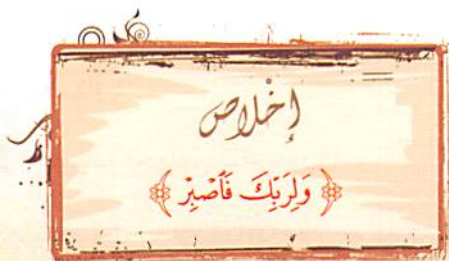 إخلاص
﴿ وَلِرَبِّكَ فَٱصْبِرْ ﴾